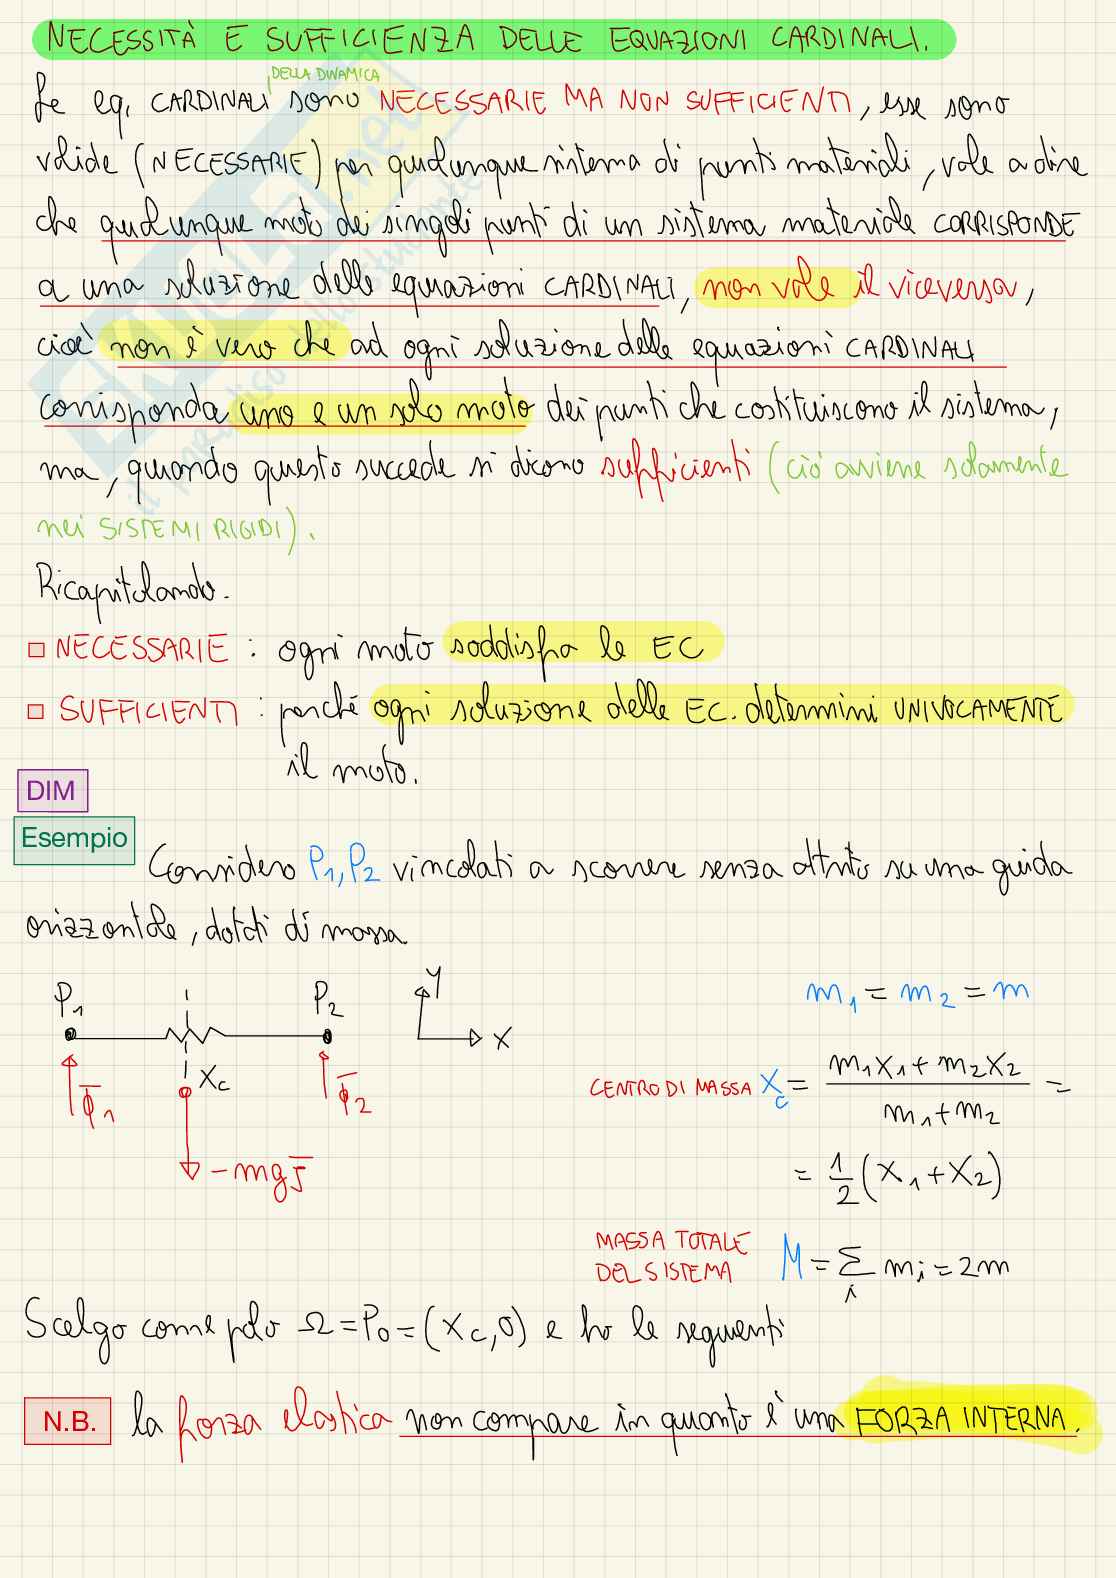 NECESSITÀ E SUFFICIENZA DELLE EQUAZIONI CARDINALI.
DELLA DINAMICA
Le eq. CARDINALI sono NECESSARIE MA NON SUFFICIENTI, esse sono
valide (NECESSARIE) per qualunque sistema di punti materiali, vale a dire
che qualunque moto dei singoli punti di un sistema materiale CORRISPONDE
a una soluzione delle equazioni CARDINALI, non vale il viceversa,
cioè non è vero che ad ogni soluzione delle equazioni CARDINALI
corrisponda uno e un solo moto dei punti che costituiscono il sistema,
ma, quando questo succede si dicono sufficienti (ciò avviene solamente
nei SISTEMI RIGIDI).
Ricapitolando.
NECESSARIE : ogni moto soddisfa le EC
SUFFICIENTI : perché ogni soluzione delle EC. determini UNIVOCAMENTE
il moto.
DIM
Esempio
Considero P₁, P₂ vincolati a scorrere senza attrito su una guida
orizzontale, dotati di massa
P₁ P₂ y x
m₁ = m₂ = m
Xc
Φ̄₁ Φ̄₂
CENTRO DI MASSA Xc = (m₁x₁ + m₂x₂)/(m₁ + m₂) =
-mg j̄
= 1/2 (x₁ + x₂)
MASSA TOTALE
DEL SISTEMA M = Σᵢ mᵢ = 2m
Scelgo come polo Ω = P₀ = (Xc, 0) e ho le seguenti
N.B. la forza elastica non compare in quanto è una FORZA INTERNA.